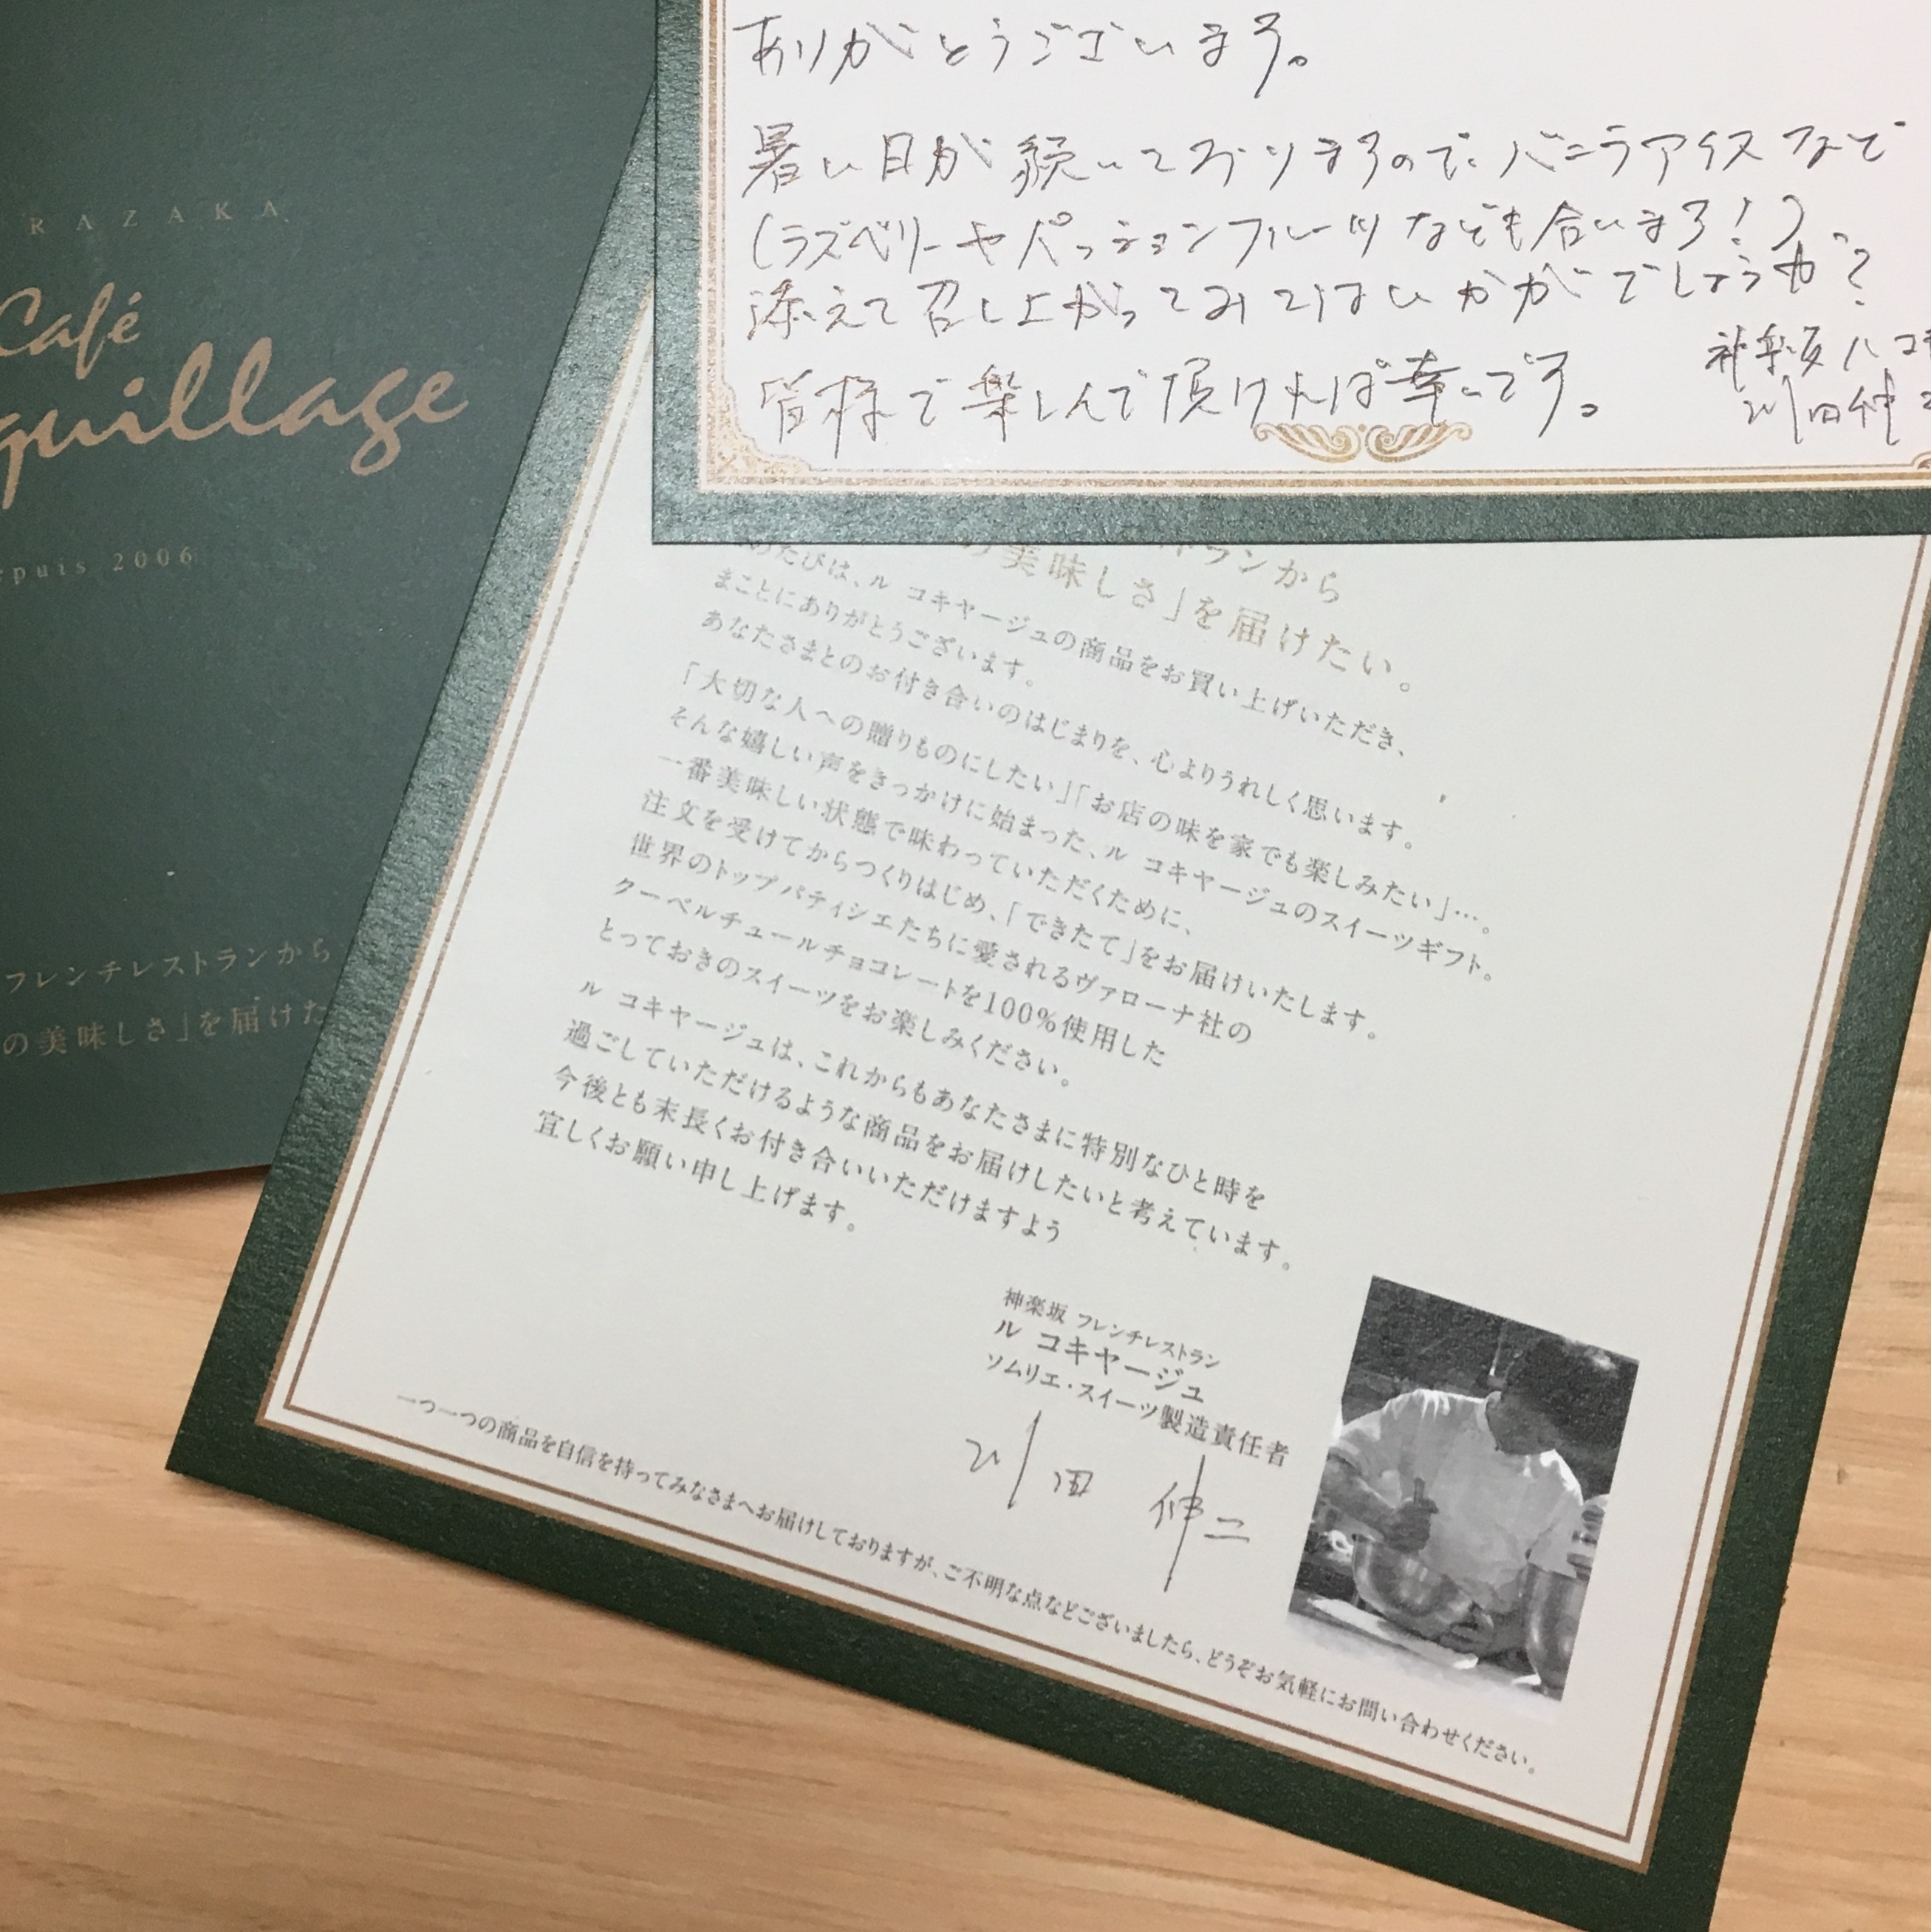 RAZAKA
Café
quillage
epuis 2006
フレンチレストランから
の美味しさ」を届けた
ありがとうございます。
暑い日が続いておりますので、バニラアイスなど
(ラズベリーやパッションフルーツなども合います!)
添えて召し上がってみてはいかがでしょうか?
皆様で楽しんで頂ければ幸いです。
神楽坂 ル コキ
川田伸二
トランから
の美味しさ」を届けたい。
のたびは、ル コキヤージュの商品をお買い上げいただき、
まことにありがとうございます。
あなたさまとのお付き合いのはじまりを、心よりうれしく思います。
「大切な人への贈りものにしたい」「お店の味を家でも楽しみたい」…。
そんな嬉しい声をきっかけに始まった、ル コキヤージュのスイーツギフト。
一番美味しい状態で味わっていただくために、
注文を受けてからつくりはじめ、「できたて」をお届けいたします。
世界のトップパティシエたちに愛されるヴァローナ社の
クーベルチュールチョコレートを100%使用した
とっておきのスイーツをお楽しみください。
ル コキヤージュは、これからもあなたさまに特別なひと時を
過ごしていただけるような商品をお届けしたいと考えています。
今後とも末長くお付き合いいただけますよう
宜しくお願い申し上げます。
神楽坂 フレンチレストラン
ル コキヤージュ
ソムリエ・スイーツ製造責任者
川田 伸二
一つ一つの商品を自信を持ってみなさまへお届けしておりますが、ご不明な点などございましたら、どうぞお気軽にお問い合わせください。